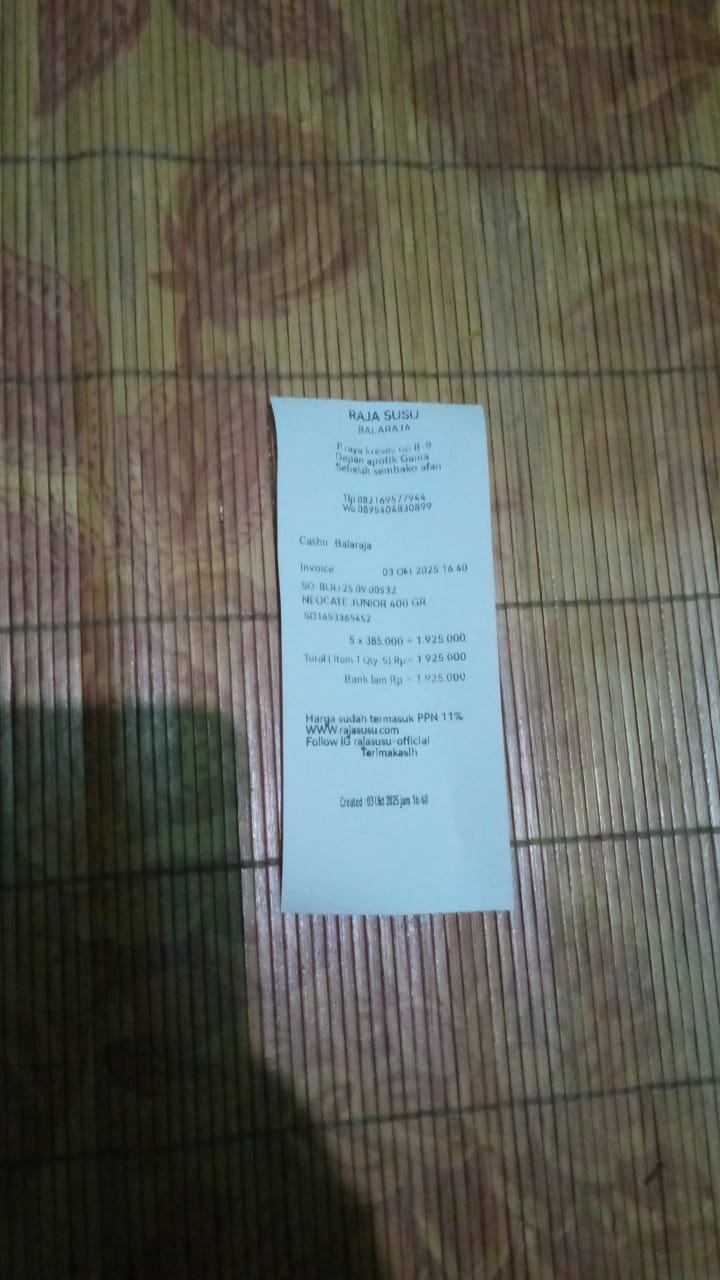 RAJA SUSU
BALARAJA
Jl raya kresek no 8-9
Depan apotik Gama
Sebelah sembako afan
Tlp 082169577944
Wa 0895404830899
Cashir Balaraja
Invoice 03 Okt 2025 16:40
NEOCATE JUNIOR 400 GR
SO1653365452
5 x 385.000 = 1.925.000
Total ( Item 1 Qty 5) Rp = 1.925.000
Bank lain Rp = 1.925.000
Harga sudah termasuk PPN 11%
WWW.rajasusu.com
Follow IG rajasusu-official
Terimakasih
Created : 03 Okt 2025 jam 16:40